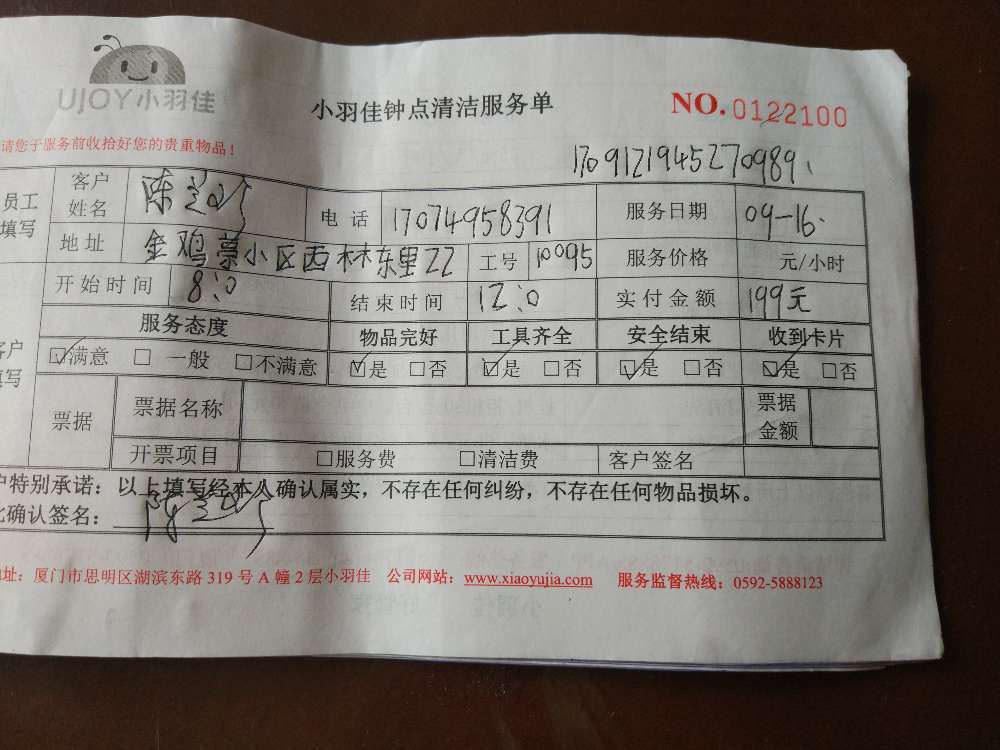 UJOY小羽佳
小羽佳钟点清洁服务单
NO.0122100
请您于服务前收拾好您的贵重物品！
1709121945270989
员工填写
客户姓名 陈
电话 17074958391
服务日期 09-16.
地址 金鸡亭小区西林东里22
工号 10095
服务价格 元/小时
开始时间 8:0
结束时间 12:0
实付金额 199元
服务态度 物品完好 工具齐全 安全结束 收到卡片
☑满意 □一般 □不满意 ☑是 □否 ☑是 □否 ☑是 □否 ☑是 □否
客户填写
票据
票据名称
票据金额
开票项目 □服务费 □清洁费 客户签名
户特别承诺：以上填写经本人确认属实，不存在任何纠纷，不存在任何物品损坏。
此确认签名：
地址：厦门市思明区湖滨东路 319 号 A 幢 2 层小羽佳 公司网站：www.xiaoyujia.com 服务监督热线：0592-5888123